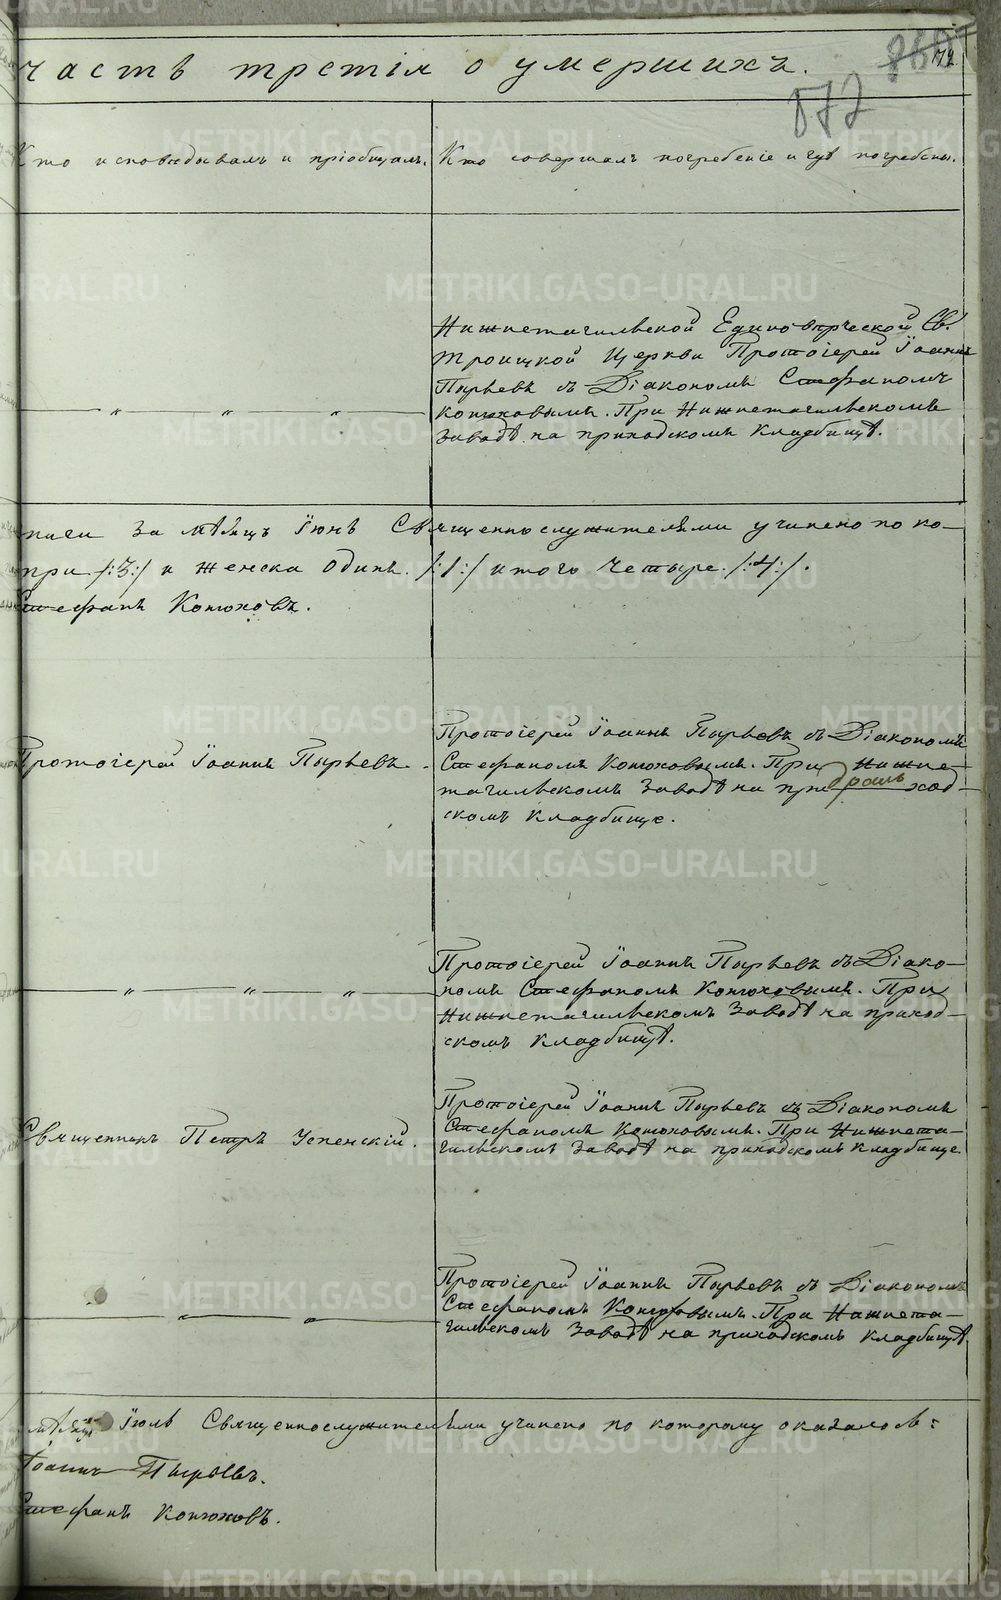 часть третія о умершихъ.
872
Кто исповѣдывалъ и пріобщалъ.
Кто совершалъ погребеніе и гдѣ погребены.
Нижнетагильской Единовѣрческой Св.
Троицкой Церкви Протоіерей Іоаннъ
Пырьевъ съ Діакономъ Стефаномъ
Конюховымъ. При Нижнетагильскомъ
Заводѣ на приходскомъ Кладбищѣ.
писи за мѣсяцъ Іюнь Священнослужителями учинено по ко-
при /:3:/ и женска Одинъ. /:1:/ итого Четыре. /:4:/.
Стефанъ Конюховъ.
Протоіерей Іоаннъ Пырьевъ.
Протоіерей Іоаннъ Пырьевъ съ Діакономъ
Стефаномъ Конюховымъ. При Нижне-
тагильскомъ Заводѣ на приход-
скомъ Кладбище.
Протоіерей Іоаннъ Пырьевъ съ Діако-
номъ Стефаномъ Конюховымъ. При
Нижнетагильскомъ Заводѣ на приход-
скомъ Кладбищѣ.
Священникъ Петръ Успенскій.
Протоіерей Іоаннъ Пырьевъ съ Діакономъ
Стефаномъ Конюховымъ. При Нижнета-
гильскомъ Заводѣ на приходскомъ Кладбище.
Протоіерей Іоаннъ Пырьевъ съ Діакономъ
Стефаномъ Конюховымъ. При Нижнета-
гильскомъ Заводѣ на приходскомъ Кладбищѣ.
мѣсяцъ Іюль Священнослужителями учинено по которому оказалось:
Іоаннъ Пырьевъ.
Стефанъ Конюховъ.
METRIKI.GASO-URAL.RU